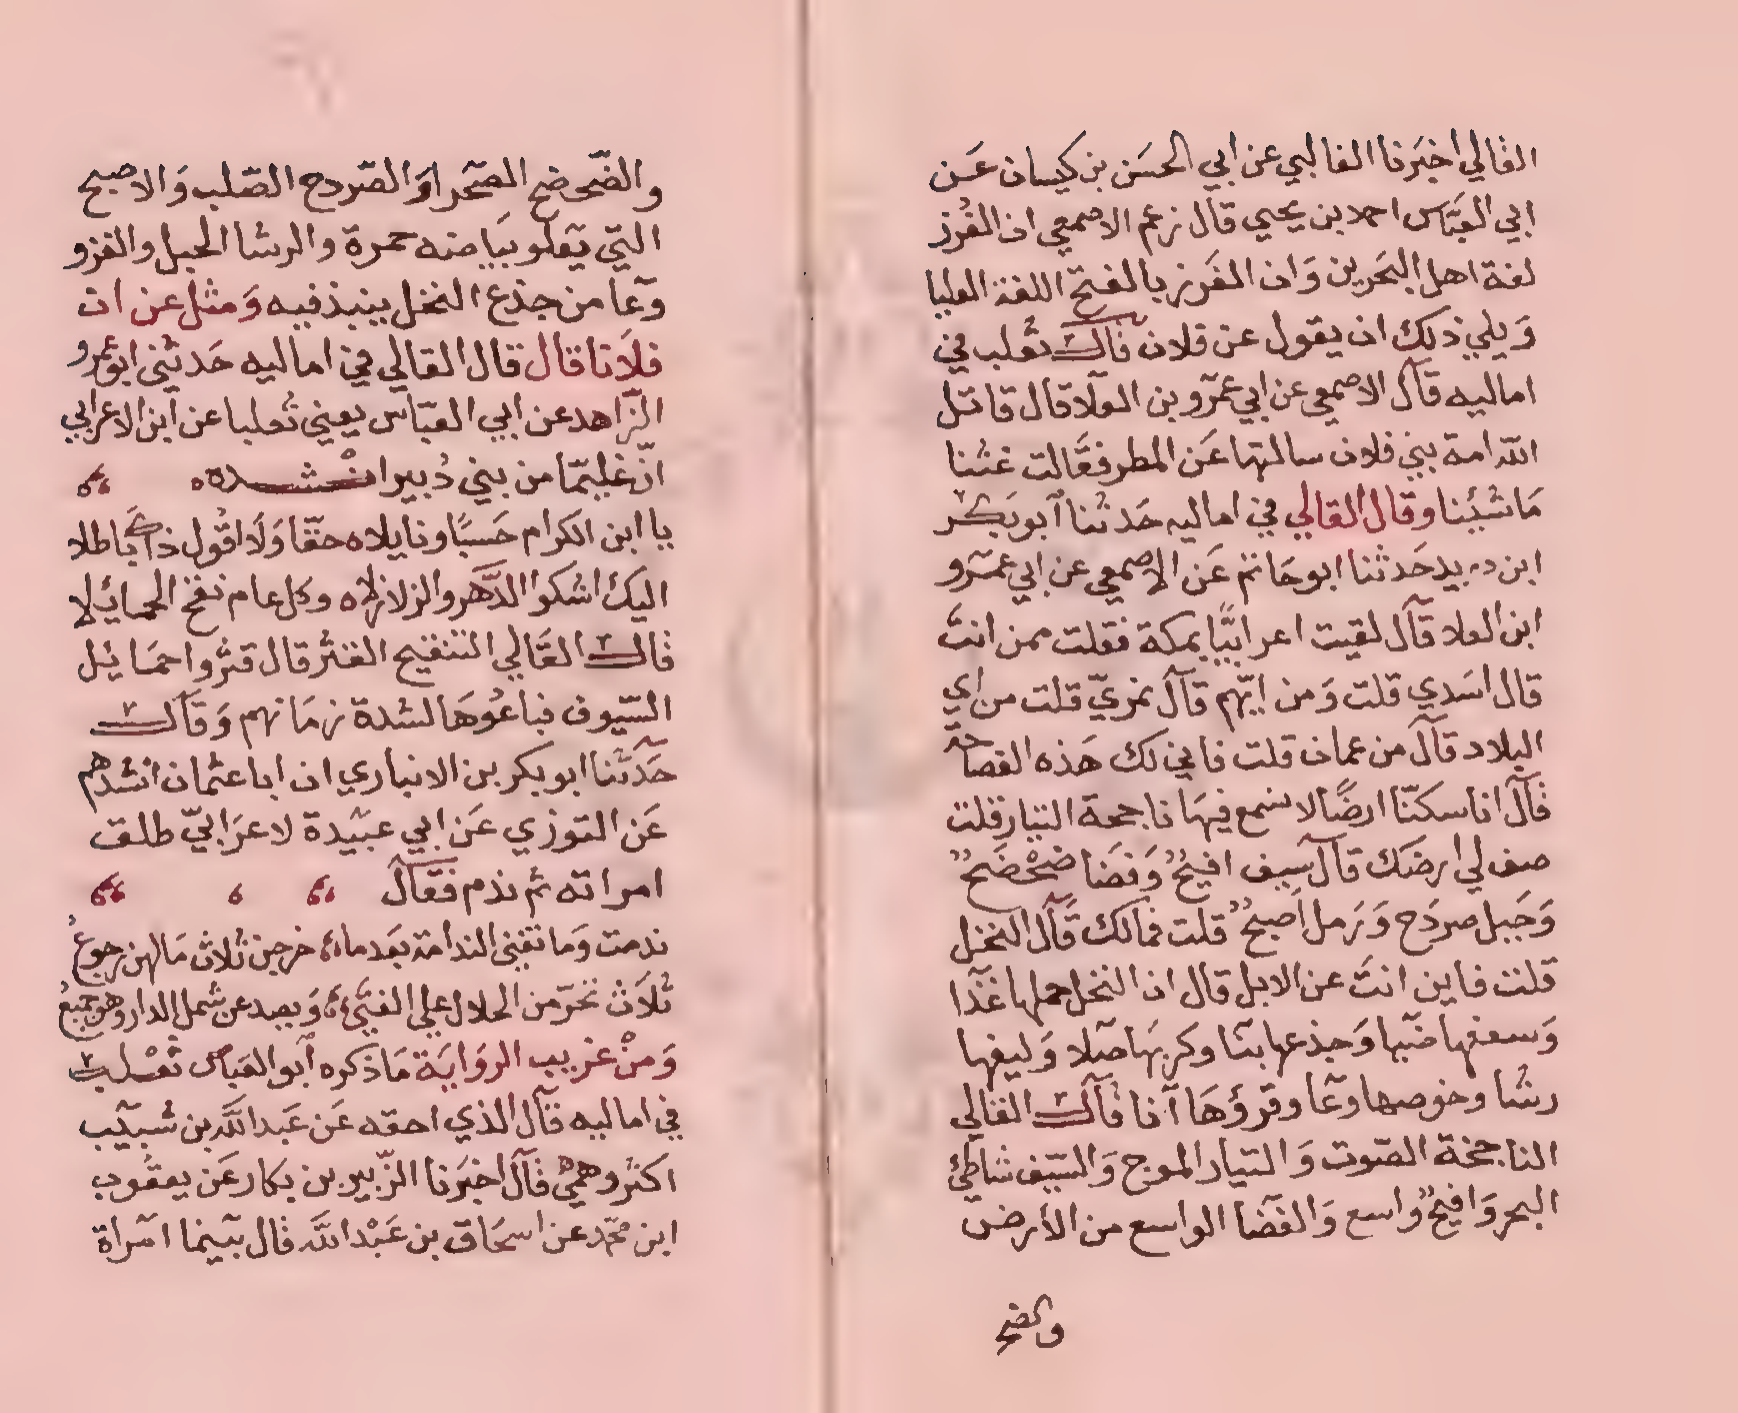 القالي اخبرنا الغالبي عن ابي الحسن بن كيسان عن
ابي العبّاس احمد بن يحيي قال زعم الاصمعي ان الفُرز
لغة اهل البحرين وَان الفَرز بالفتح اللغة العليا
وَيلي ذلك ان يقول عن فلان قال ثعلب في
اماليه قال الاصمعي عن ابي عمرو بن العلا قال قاتل
الله امة بني فلان سالتها عَن المطر فقالت غثنا
مَا شئنا وقال القالي في اماليه حَدثنا أبو بَكر
ابن دريد حَدثنا ابو حَاتم عَن الاصمعي عن ابي عمرو
ابن العلا قال لقيت اعرابيًّا بمكة فقلت ممن انتَ
قال اسَدي قلت وَمن ايّهم قال نمريّ قلت من اي
البلاد قال من عمان قلت فاني لك هَذه الفصاحة
قال انا سكنّا ارضًا لا نسمع فيهَا ناجحة التيار قلت
صف لي ارضك قال سيف افيحُ وَفضَا ضحْضَحُ
وَجَبل صردَح وَرَمل اَصبحُ قلت فمالك قال النخل
قلت فاين انتَ عن الابل قال ان النخل حملها غذا
وَسعفها ضيا وَجذعها بنا وكربهَا صلا وَليفها
رشا وخوصها وعَا وقروُهَا آنا قال القالي
الناجخة الصّوت وَالتيار الموج وَالسّيف شاطئ
البحر وَافيحُ واسع وَالفضا الواسع من الأرض
والضح
والضّحضح الصّحرا وَالصّردح الصّلب وَالاصبح
التي يَعلو بيَاضه حمرة والرشا الحبل والقرو
وعَا من جذع النخل ينبذ فيه وَمثل عن ان
فلَانا قال قال القالي في اماليه حَدثني ابو عمرو
الزّاهد عن ابي العبّاس يعني ثعلبا عن ابن الاعرابي
انّ غليّما من بني دُبير انْشده
يا ابن الكرام حَسبًا ونايلا ه حقّا وَلَا اقول ذاك بَاطلا
اليك اشكوا الدّهر والزلازلا ه وكل عام نقح الحمائلا
قال القَالي التنقيح القشر قال قشّروا حمَائل
السّيوف فباعُوهَا لشدة زمَانهم وَقال
حَدّثنا ابو بكر بن الانباري ان ابا عثمان انشدهم
عَن التوزي عَن ابي عبيدة لاعرَابيّ طلق
امراته ثم ندم فقال
ندمت وَما تغني الندامة بعَدما خرجن ثلاث مَا لهن رجوعُ
ثلَاث تحرّمن الحلال علي الفتَي وَيصدعن شمل الدار وهو جميعُ
وَمنْ غريب الروَاية مَا ذكره أبو العَباس ثعْلب
في اماليه قال الذي احقه عَن عَبد الله بن شبيب
اكثر وهمي قال اخبَرنا الزّبير بن بكار عَن يعقوب
ابن محمّد عن اسحَاق بن عَبْد الله قال بينما امرَاة